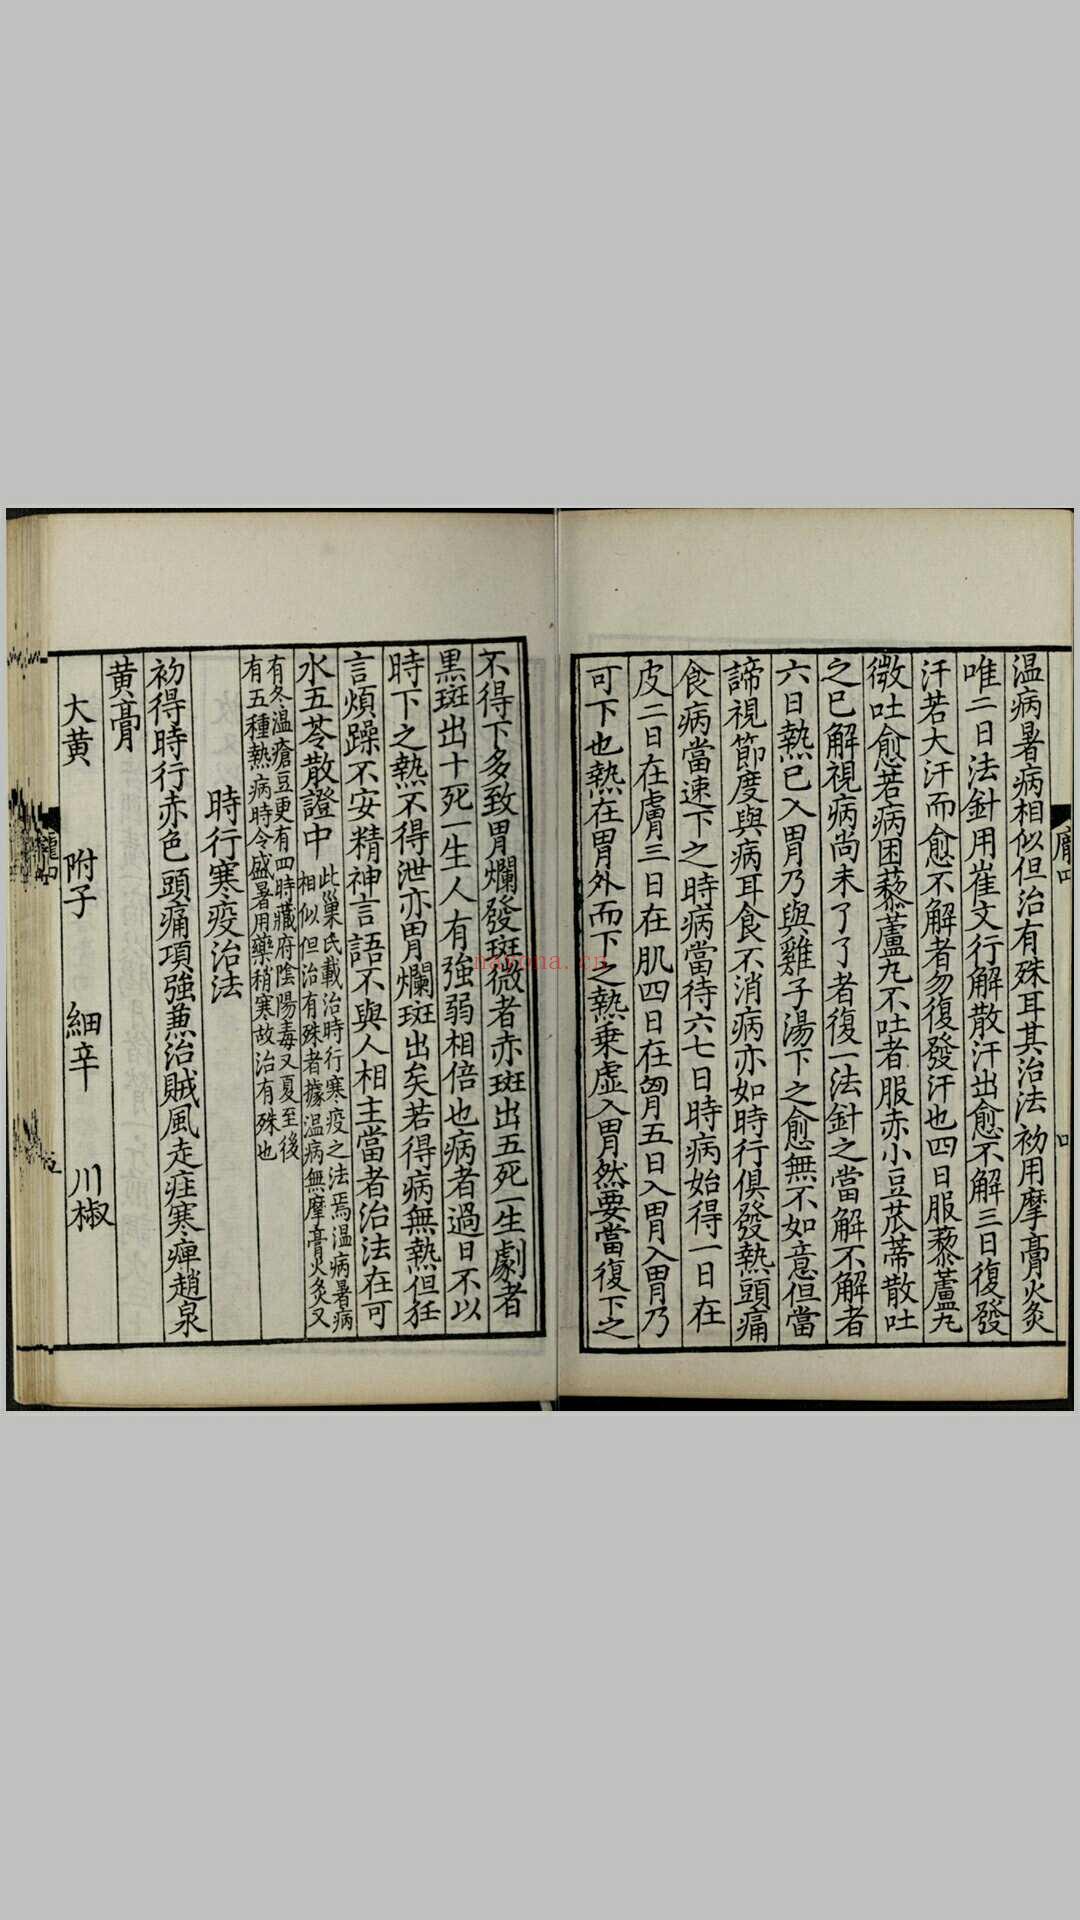 温病暑病相似但治有殊耳其治法初用摩膏火灸
唯二日法針用崔文行解散汗出愈不解三日復發
汗若大汗而愈不解者勿復發汗也四日服藜蘆丸
微吐愈若病困藜蘆丸不吐者服赤小豆苽蒂散吐
之已解視病尚未了了者復一法針之當解不解者
六日熱已入胃乃與雞子湯下之愈無不如意但當
諦視節度與病耳食不消病亦如時行俱發熱頭痛
食病當速下之時病當待六七日時病始得一日在
皮二日在膚三日在肌四日在胷五日入胃入胃乃
可下也熱在胃外而下之熱乗虛入胃然要當復下之
不得下多致胃爛發斑微者赤斑出五死一生劇者
黒斑出十死一生人有強弱相倍也病者過日不以
時下之熱不得泄亦胃爛斑出矣若得病無熱但狂
言煩躁不安精神言語不與人相主當者治法在可
水五苓散證中
此巢氏載治時行寒疫之法焉温病暑病
相似但治有殊者據温病無摩膏火灸又
有冬温瘡豆更有四時藏府陰陽毒又夏至後
有五種熱病時令盛暑用藥稍寒故治有殊也
時行寒疫治法
初得時行赤色頭痛項強兼治賊風走疰寒痺趙泉
黄膏
大黄 附子 細辛 川椒
nayona.cn